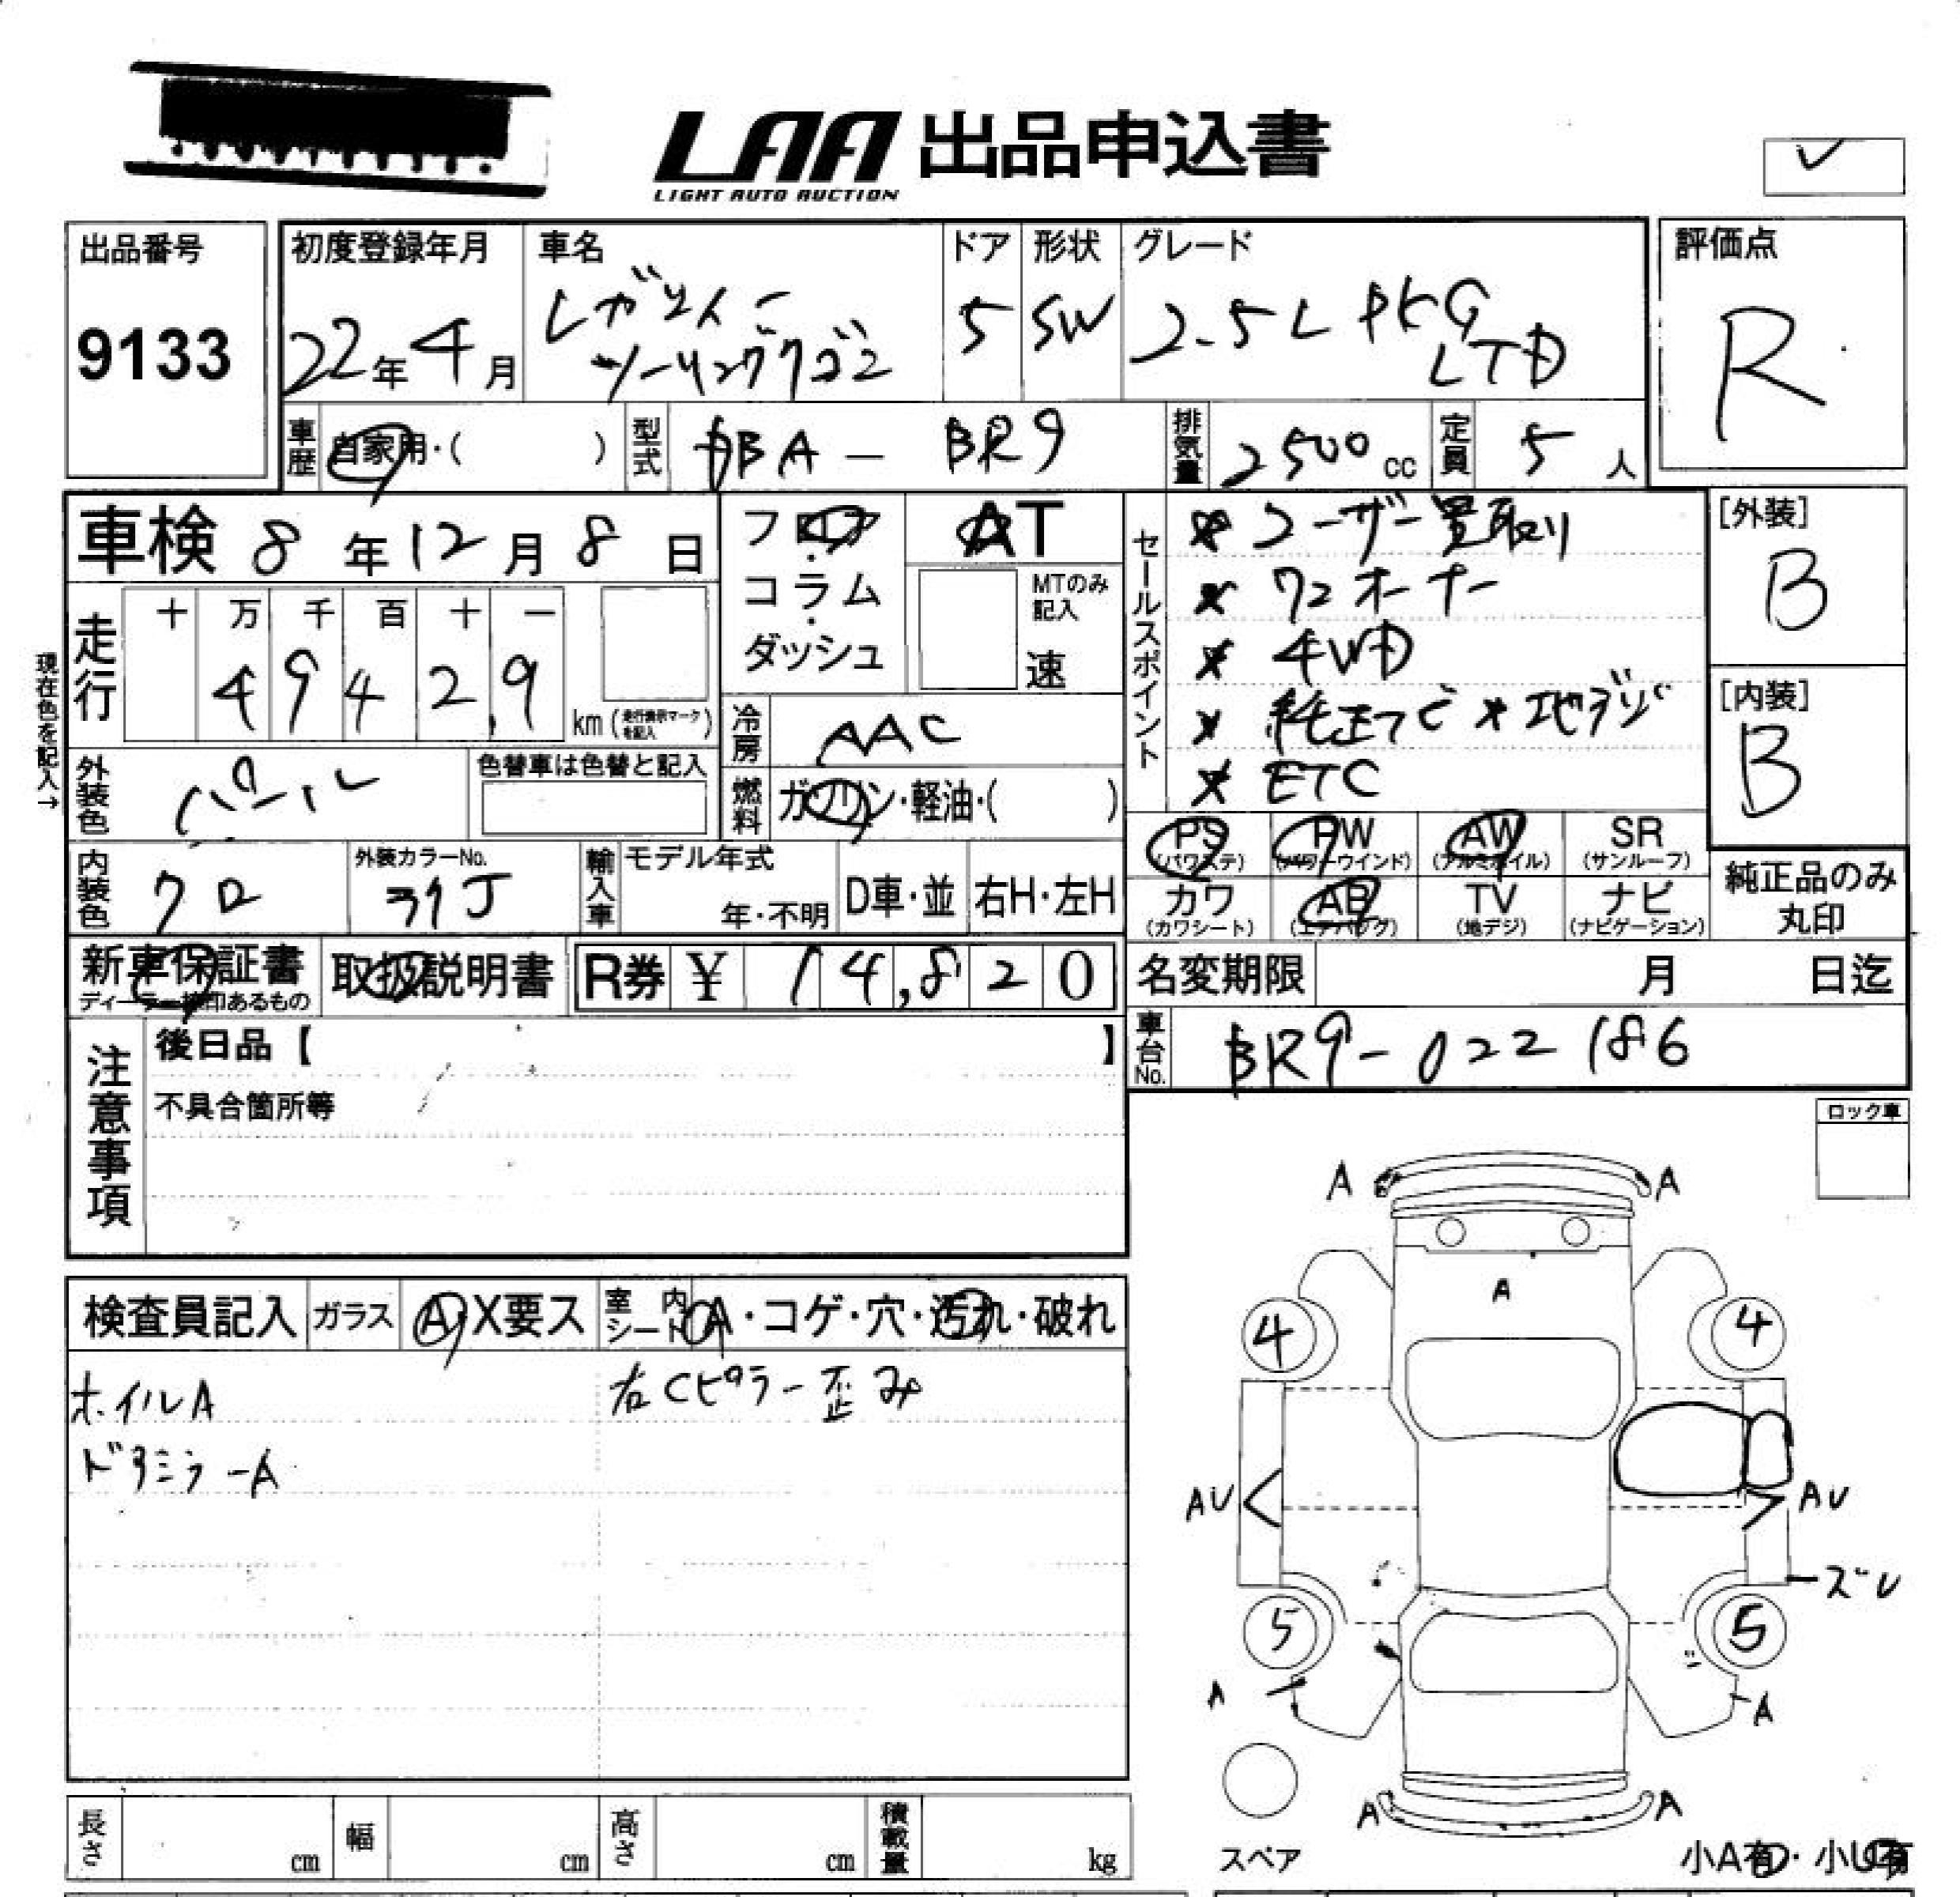 LAA 出品申込書
LIGHT AUTO AUCTION
出品番号
9133
初度登録年月
22年4月
車名
レガシィー
ツーリングワゴン
ドア
5
形状
SW
グレード
2.5L PKG
LTD
評価点
R
車歴
自家用・( )
型式
DBA - BR9
排気量
2500 cc
定員
5 人
車検 8年12月8日
フロア・コラム・ダッシュ
AT
MTのみ記入
速
セールスポイント
ユーザー買取り
ワンオーナー
4WD
純正ナビ 地デジ
ETC
[外装]
B
[内装]
B
現在色を記入→
走行
十 万 千 百 十 一
4 9 4 2 9
km (走行表示マークを記入)
冷房
AAC
外装色
パール
色替車は色替と記入
燃料
ガソリン・軽油・( )
内装色
クロ
外装カラーNo.
37J
輸入車
モデル年式
年・不明
D車・並
右H・左H
PS
(パワステ)
PW
(パワーウインド)
AW
(アルミホイル)
SR
(サンルーフ)
カワ
(カワシート)
AB
(エアバッグ)
TV
(地デジ)
ナビ
(ナビゲーション)
純正品のみ
丸印
新車保証書
ディーラー捺印あるもの
取扱説明書
R券 ¥ 14,820
名変期限 月 日迄
車台No.
BR9-022186
注意事項
後日品【 】
不具合箇所等
ロック車
検査員記入
ガラス
A・X要ス
室内シート
A・コゲ・穴・汚れ・破れ
ホイルA
右Cピラー歪み
ドアミラーA
A A
A
4 4
AU AU
ズレ
5 5
A A
A A
スペア
小A有・小U有
長さ cm
幅 cm
高さ cm
積載量 kg